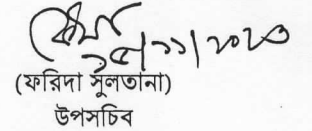 ১৫/১১/২০২৩
(ফরিদা সুলতানা)
উপসচিব